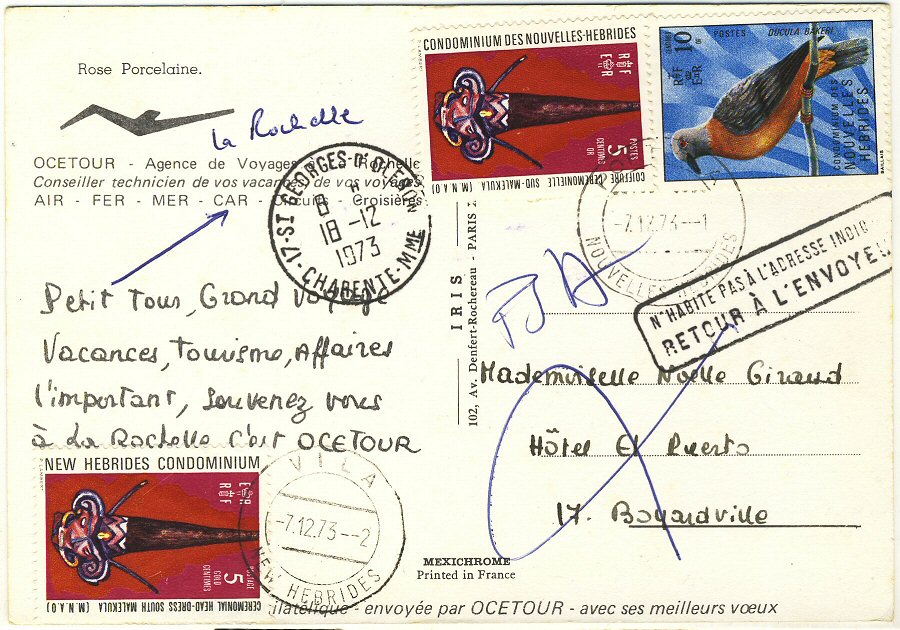 Rose Porcelaine.
la Rochelle
OCETOUR - Agence de Voyages Rochelle
Conseiller technicien de vos vacances de vos voyages
AIR - FER - MER - CAR - Circuits - Croisières
17-ST GEORGES-D'OLERON
18-12
1973
CHARENTE-MME
Petit Tour, Grand Voyage
Vacances, Tourisme, Affaires
l'important, souvenez vous
à La Rochelle c'est OCETOUR
NEW HEBRIDES CONDOMINIUM
E R
R F
POSTAGE
5 GOLD CENTIMES
CEREMONIAL HEAD-DRESS SOUTH MALEKULA (M.N.A.O)
VILA
-7.12.73--2
NEW HEBRIDES
CONDOMINIUM DES NOUVELLES-HEBRIDES
R F
E R
POSTES
5 CENTIMES OR
COIFFURE CEREMONIELLE SUD-MALEKULA (M.N.A.O)
10 CENTIMES OR
POSTES
DUCULA BAKERI
RF
CONDOMINIUM DES
NOUVELLES
HEBRIDES
-7.12.73--1
NOUVELLES HEBRIDES
N'HABITE PAS À L'ADRESSE INDIQ
RETOUR À L'ENVOYEU
IRIS
102, Av. Denfert-Rochereau - PARIS
Mademoiselle Noëlle Giraud
Hôtel El Puerto
17. Boyardville
MEXICHROME
Printed in France
philatélique - envoyée par OCETOUR - avec ses meilleurs vœux